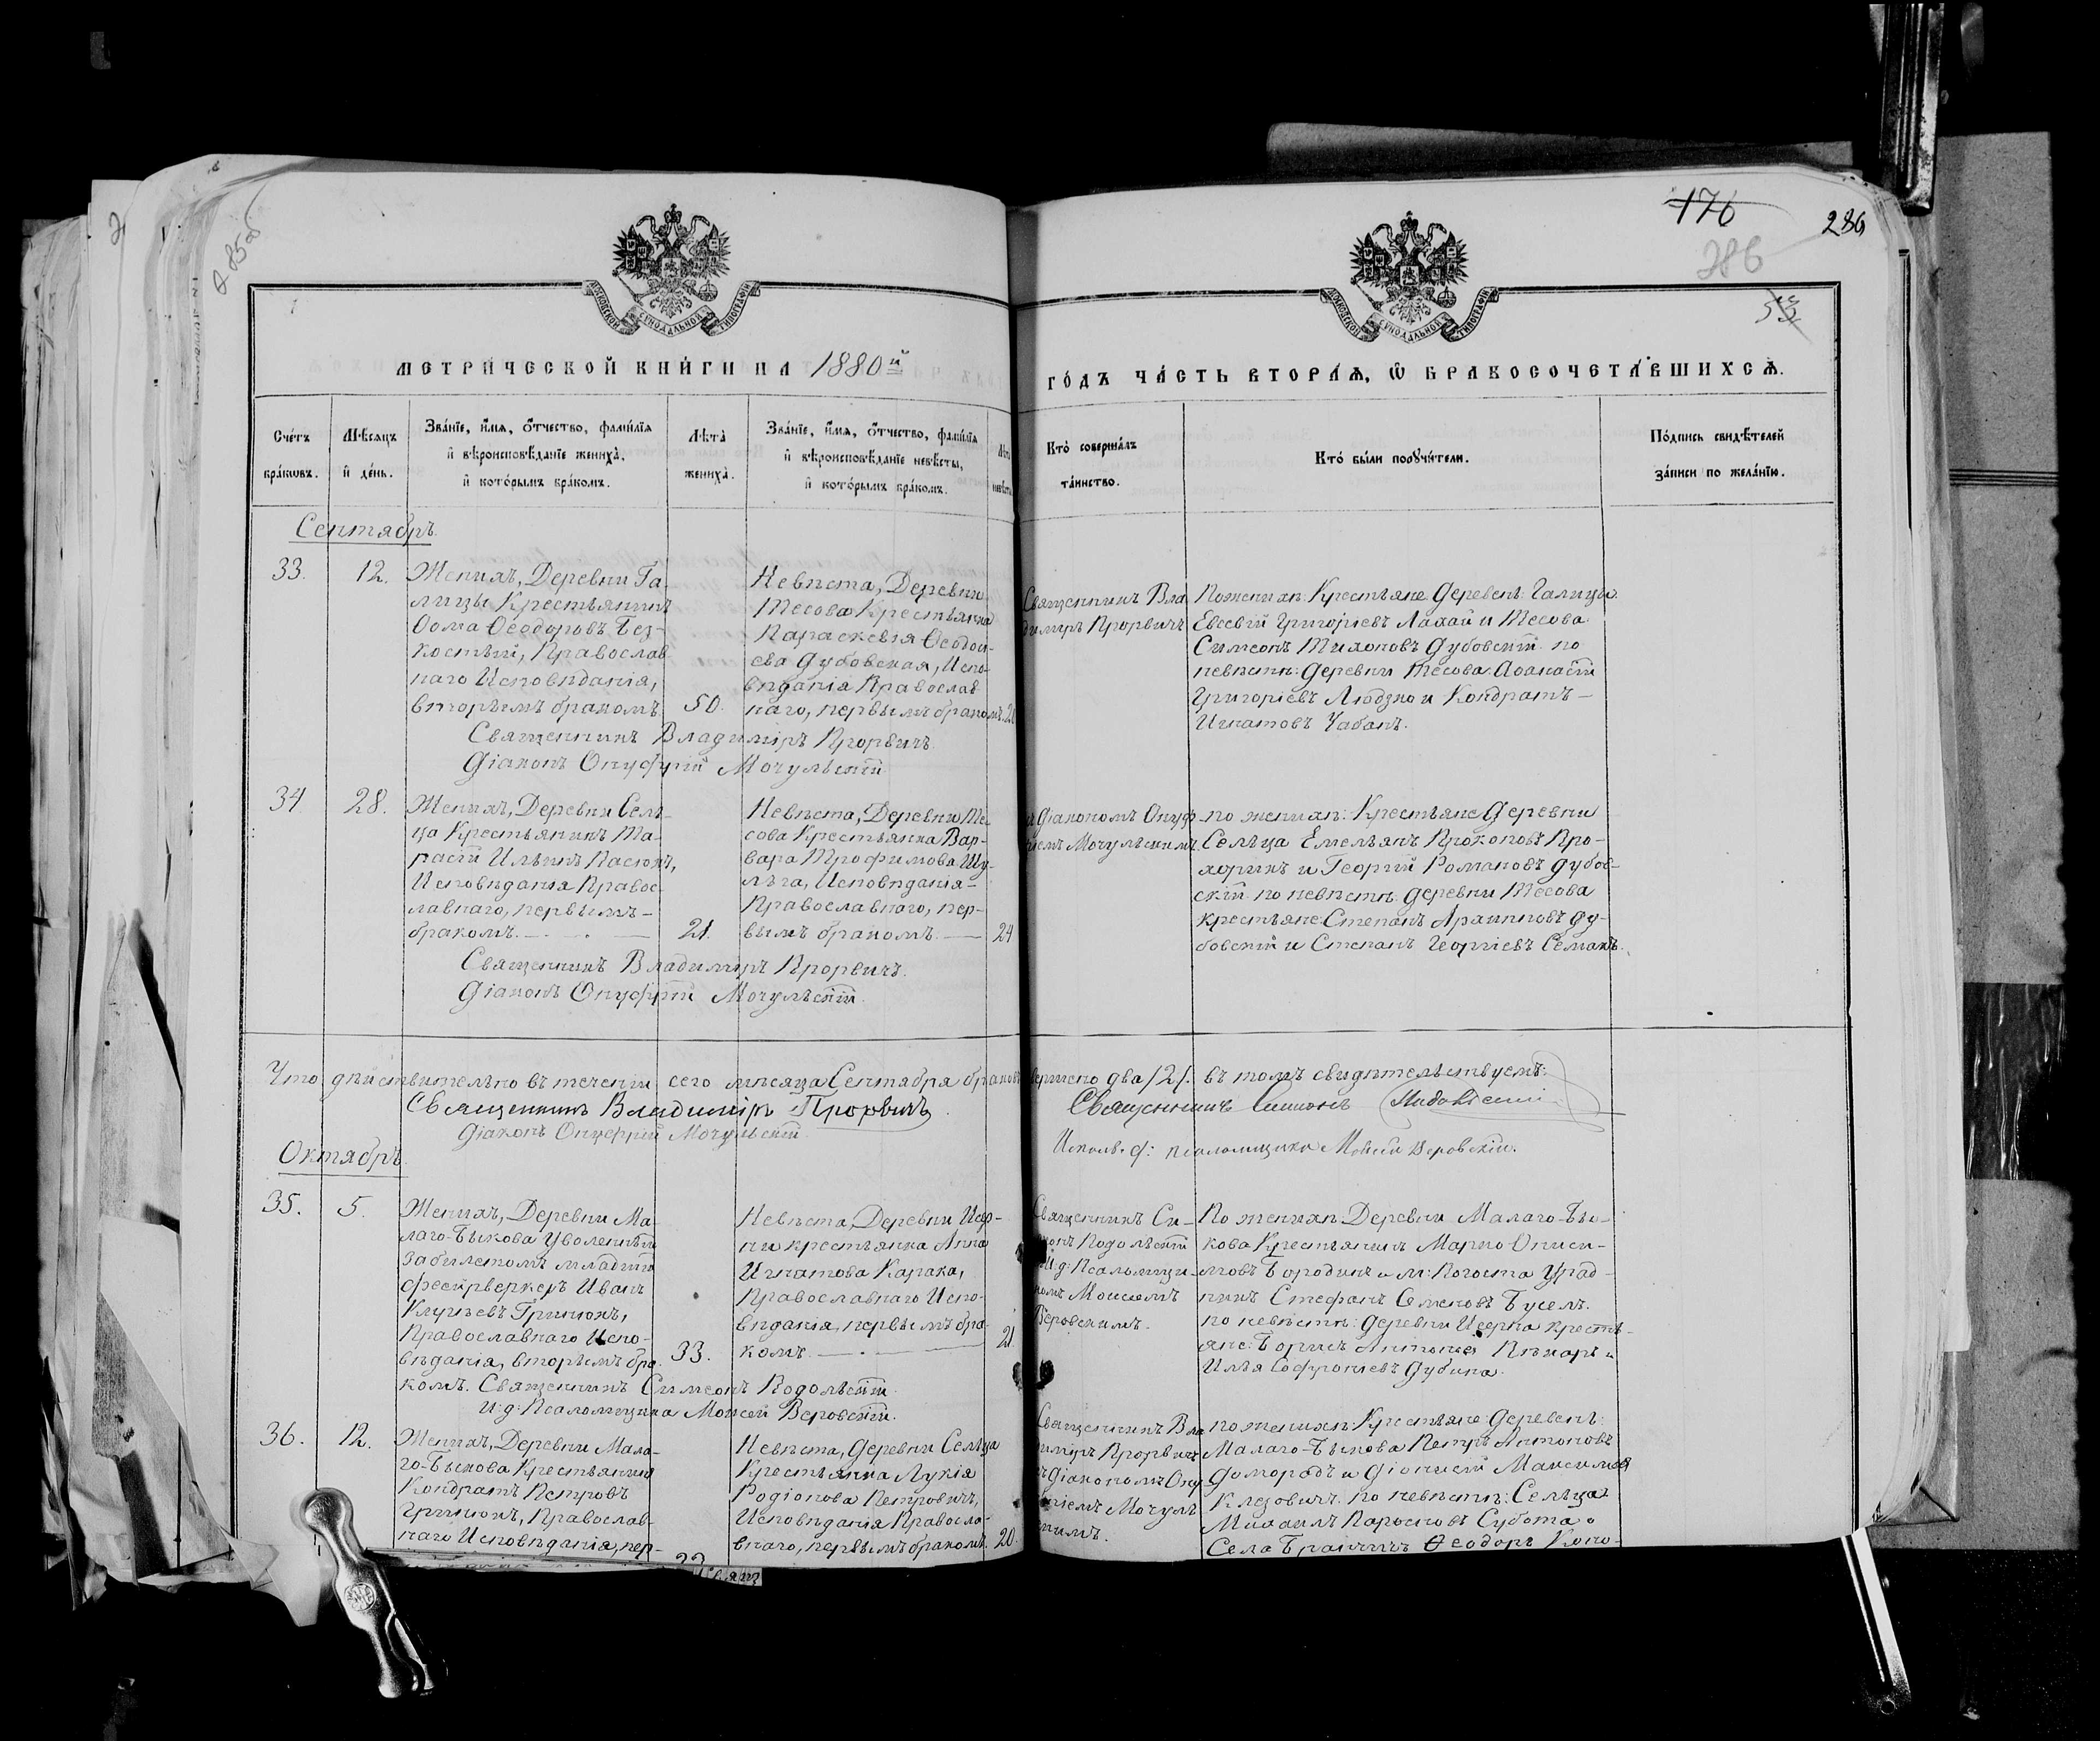 176
286
286
53
МОСКОВСКОЙ СѴНОДАЛЬНОЙ ТИПОГРАФІИ
МОСКОВСКОЙ СѴНОДАЛЬНОЙ ТИПОГРАФІИ
МЕТРИ́ЧЕСКОЙ КНИ́ГИ НА 1880й
ГО́ДЪ ЧА́СТЬ ВТОРА́Ѧ, Ѡ БРАКОСОЧЕТА́ВШИХСѦ.
Сче́тъ
бра́ковъ.
Мѣ́сѧцъ
и де́нь.
Зва́нїе, и́мѧ, ѻ́тчество, фами́лїѧ
и вѣроисповѣ́данїе жениха̀,
и кото́рымъ бра́комъ.
Лѣта̀
жениха̀.
Зва́нїе, и́мѧ, ѻ́тчество, фами́лїѧ
и вѣроисповѣ́данїе невѣ́сты,
и кото́рымъ бра́комъ.
Кто̀ соверша́лъ
та́инство.
Кто̀ бы́ли порꙋчи́тели.
По́дпись свидѣ́телей
за́писи по жела́нїю.
Сентябрь.
33.
12.
Женихъ, Деревни Га-
лицы Крестьянинъ
Ѳома Ѳеодоровъ Без-
костый, Православ
наго Исповѣданія,
вторымъ бракомъ.
50.
Невѣста, Деревни
Тесова Крестьянка
Параскевія Ѳеодось-
ева Дубовская, Испо-
вѣданія Православ
наго, первымъ бракомъ.
Священникъ Вла
димиръ Прорвичъ
По женихѣ: Крестьяне Деревень: Галицы
Евсевій Григоріевъ Лахай и Тесова
Симеонъ Тихоновъ Дубовскій. по
невѣстѣ: деревни Тесова Аѳанасій
Григоріевъ Людзко и Кондратъ —
Игнатовъ Чабанъ.
Священникъ Владиміръ Прорвичъ.
Діаконъ Онуфрій Мочульскій
34
28.
Женихъ, Деревни Сель-
ца Крестьянинъ Та-
расій Ильинъ Пасюкъ,
Исповѣданія Правос-
лавнаго, первымъ —
бракомъ. —
21.
Невѣста, Деревни Те
сова Крестьянка Вар-
вара Трофимова Шу-
льга, Исповѣданія —
Православнаго, пер-
вымъ бракомъ. —
24
Діакономъ Онуф-
ріемъ Мочульскимъ
по женихѣ: Крестьяне Деревни
Сельца Емельянъ Прокоповъ Про-
хорикъ и Георгій Романовъ Дубов-
скій по невѣстѣ: деревни Тесова
крестьяне: Степанъ Архиповъ Ду-
бовскій и Степанъ Георгіевъ Семакъ.
Священникъ Владиміръ Прорвичъ.
Діаконъ Онуфрій Мочульскій.
Что дѣйствительно въ теченіи сего мѣсяца Сентября браковъ
вершено два /2/. въ томъ свидѣтельствуемъ:
Священникъ Владиміръ Прорвичъ.
Священникъ Симеонъ
Діаконъ Онуфрій Мочульскій.
псаломщика Моисей Веровскій.
Октябрь.
35.
5.
Женихъ, Деревни Ма-
лаго-Быкова Уволенный
за билетомъ младшій
фейерверкеръ Иванъ
Гринюкъ,
Православнаго Испо-
вѣданія, вторымъ бра-
комъ.
33.
Невѣста, Деревни Исер-
ни крестьянка Анна
Игнатова Карака,
Православнаго Испо-
вѣданія, первымъ бра-
комъ. —
21
Священникъ Си-
монъ Подольскій
И: д: Псаломщи-
комъ Моисеемъ
Веровскимъ.
По женихѣ Деревни Малаго-Бы-
кова Крестьянинъ Марко Ониси-
мовъ Бородичъ и м: Погоста Уряд-
никъ Стефанъ Семеновъ Бусель.
по невѣстѣ: деревни Исерна кресть-
яне: Борисъ Антоновъ Пѣкарь и
Илья Софроніевъ Дубина.
Священникъ Симеонъ Подольскій.
И: д: Псаломщика Моисей Веровскій.
36.
12.
Женихъ, Деревни Мала-
го-Быкова Крестьянинъ
Кондратъ Петровъ
Гринюкъ, Православ-
наго Исповѣданія, пер-
Невѣста, Деревни Сельца
Крестьянка Лукія
Родіонова Петровичъ,
Исповѣданія Правосла-
внаго, первымъ бракомъ.
20.
Священникъ Вла
диміръ Прорвичъ
съ Діакономъ Ону-
фріемъ Мочуль
скимъ.
по женихѣ: Крестьяне: Деревень:
Малаго-Быкова Петръ Антоновъ
Доморадъ и Діонисій Максимов
Клезовичъ. по невѣстѣ: Сельца
Михаилъ Субота и
Села Ѳеодоръ Коно-